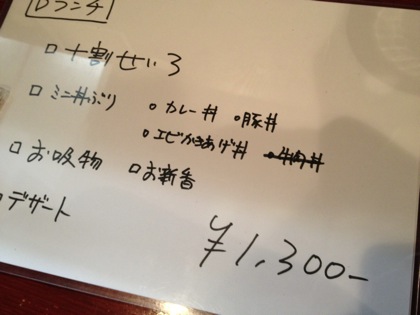 Dランチ
□ 十割せいろ
□ ミニ丼ぶり ○ カレー丼 ○豚丼
○エビかきあげ丼 ○牛肉丼
□お吸物 □お新香
デザート
¥1,300-